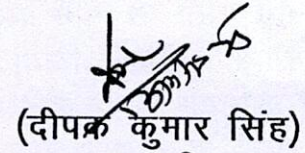 (दीपक कुमार सिंह)